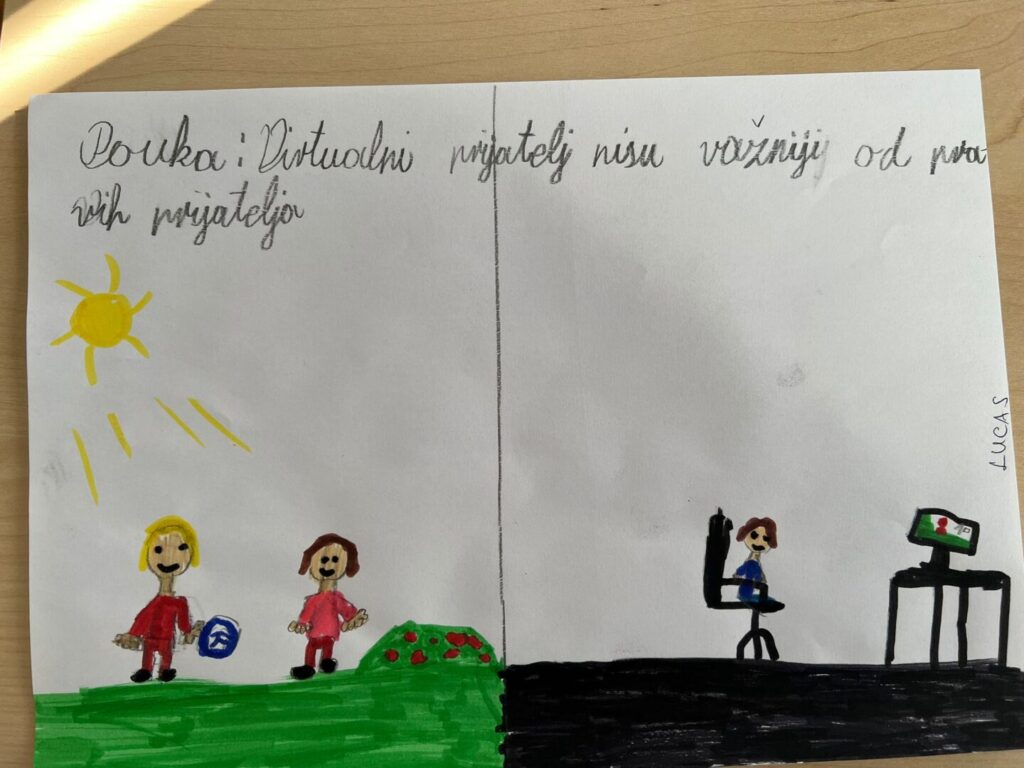 Pouka: Virtualni prijatelj nisu važniji od pra-
vih prijatelja
LUCAS